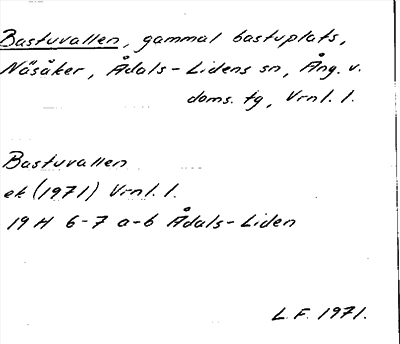 Bastuvallen, gammal bastuplats,
Näsåker, Ådals-Lidens sn, Ång. v.
doms. tg, Vrnl. l.
Bastuvallen
ek (1971) Vrnl. l.
19 H 6-7 a-b Ådals-Liden
L.F. 1971.